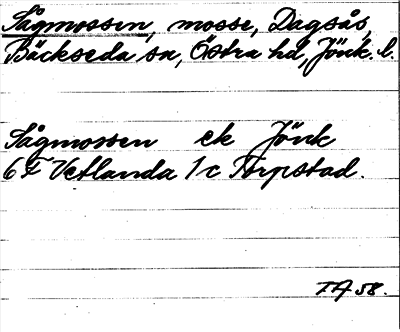 Sågmossen, mosse, Dagsås,
Bäckseda sn, Östra hd, Jönk. l.
Sågmossen ek Jönk
6 F Vetlanda 1 c Torpstad.
TA 58.